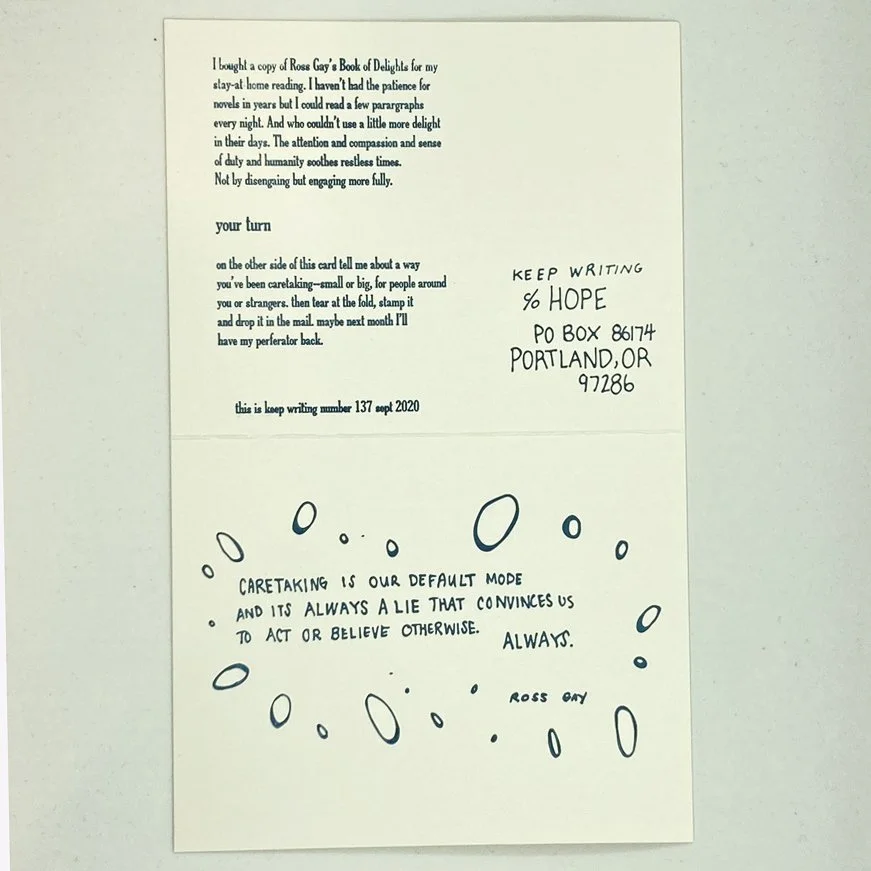 I bought a copy of Ross Gay's Book of Delights for my
stay-at home reading. I haven't had the patience for
novels in years but I could read a few parargraphs
every night. And who couldn't use a little more delight
in their days. The attention and compassion and sense
of duty and humanity soothes restless times.
Not by disengaing but engaging more fully.
your turn
on the other side of this card tell me about a way
you've been caretaking—small or big, for people around
you or strangers. then tear at the fold, stamp it
and drop it in the mail. maybe next month I'll
have my perferator back.
this is keep writing number 137 sept 2020
KEEP WRITING
c/o HOPE
PO BOX 86174
PORTLAND, OR
97286
CARETAKING IS OUR DEFAULT MODE
AND ITS ALWAYS A LIE THAT CONVINCES US
TO ACT OR BELIEVE OTHERWISE.
ALWAYS.
ROSS GAY